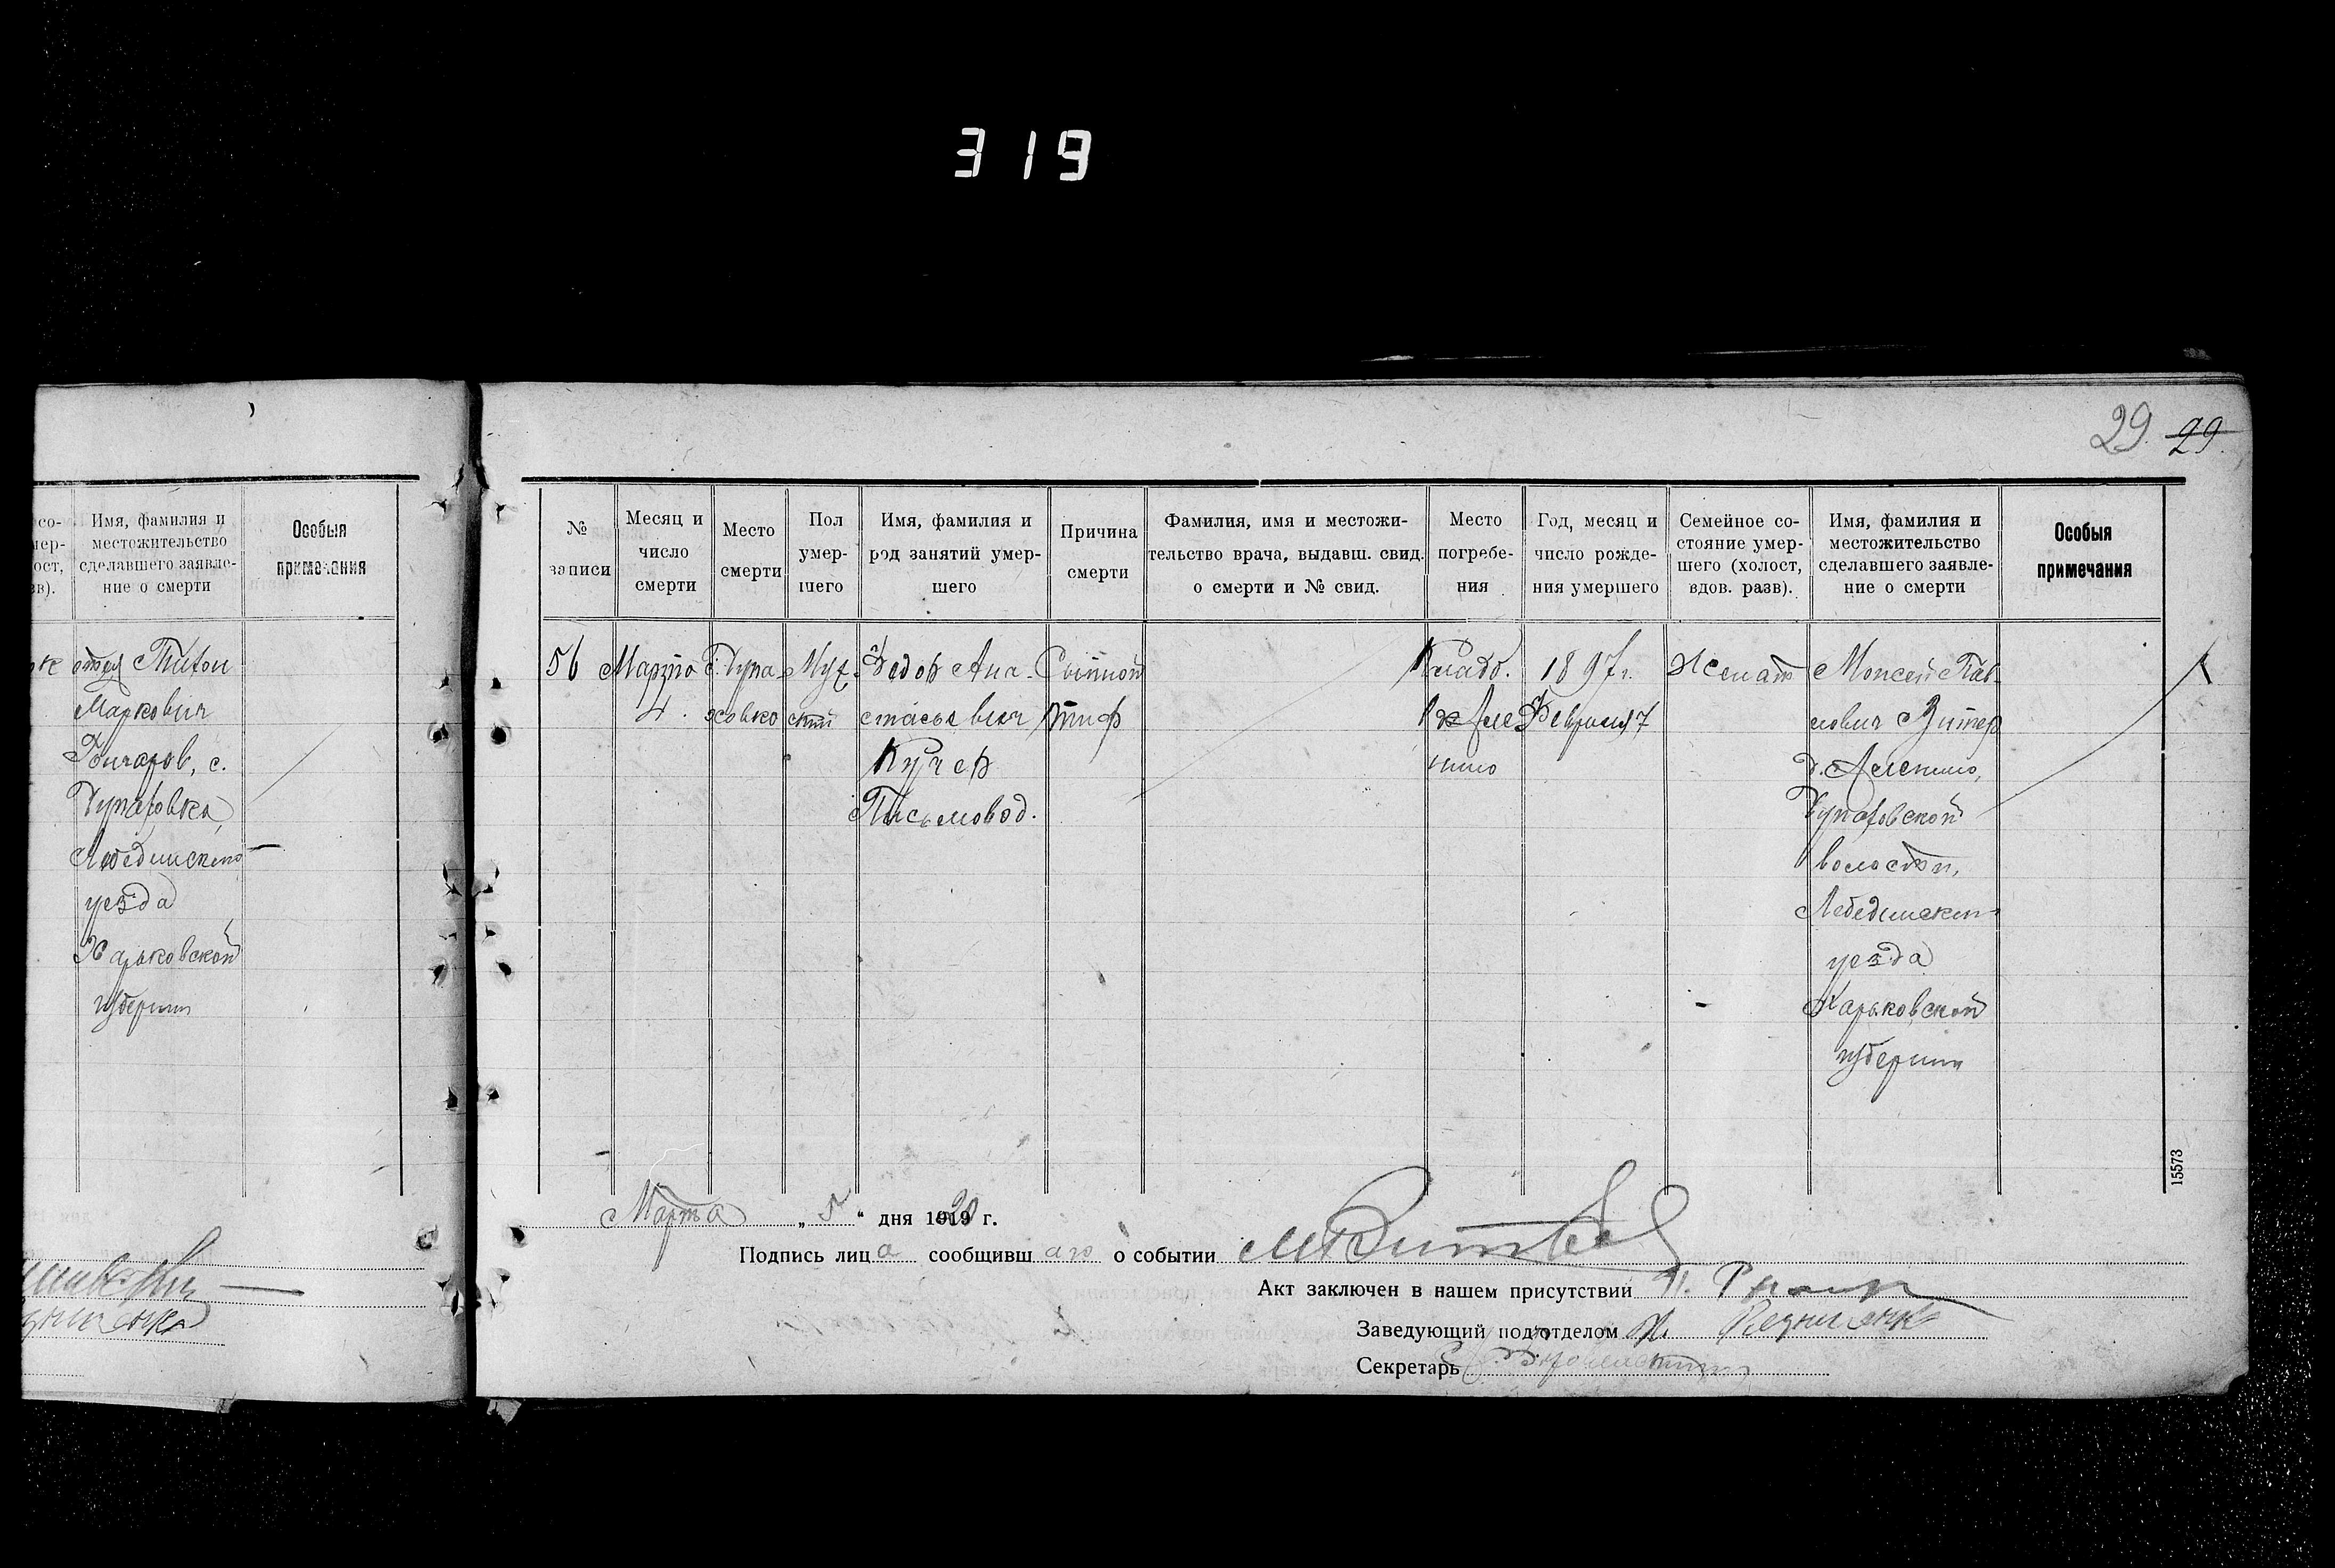 319
29. 29.
со-
мер-
ост,
зв).
Имя, фамилия и
местожительство
сделавшего заявле-
ние о смерти
Особыя
примечания
отец Титон
Маркович
Гончаров, с.
Чупаховка,
Лебединского
уезда
Харьковской
губернии
№
записи
Месяц и
число
смерти
Место
смерти
Пол
умер-
шего
Имя, фамилия и
род занятий умер-
шего
Причина
смерти
Фамилия, имя и местожи-
тельство врача, выдавш. свид.
о смерти и № свид.
Место
погребе-
ния
Год, месяц и
число рожде-
ния умершего
Семейное со-
стояние умер-
шего (холост,
вдов. разв).
Имя, фамилия и
местожительство
сделавшего заявле-
ние о смерти
Особыя
примечания
56
Марта
4.
с. Чупа-
ховка
Муж-
ской
Федор Ана-
стасьевич
Кучер
Письмовод.
Сыпной
тиф
Кладб.
1897 г.
Февраля 7
Женат
Моисей Пав-
лович
Чупаховской
волости,
Лебединского
уезда
Харьковской
губернии
15573
Марта „ 5 “ дня 1920 г.
Подпись лица сообщившаго о событии
Акт заключен в нашем присутствии
Заведующий под'отделом
Секретарь